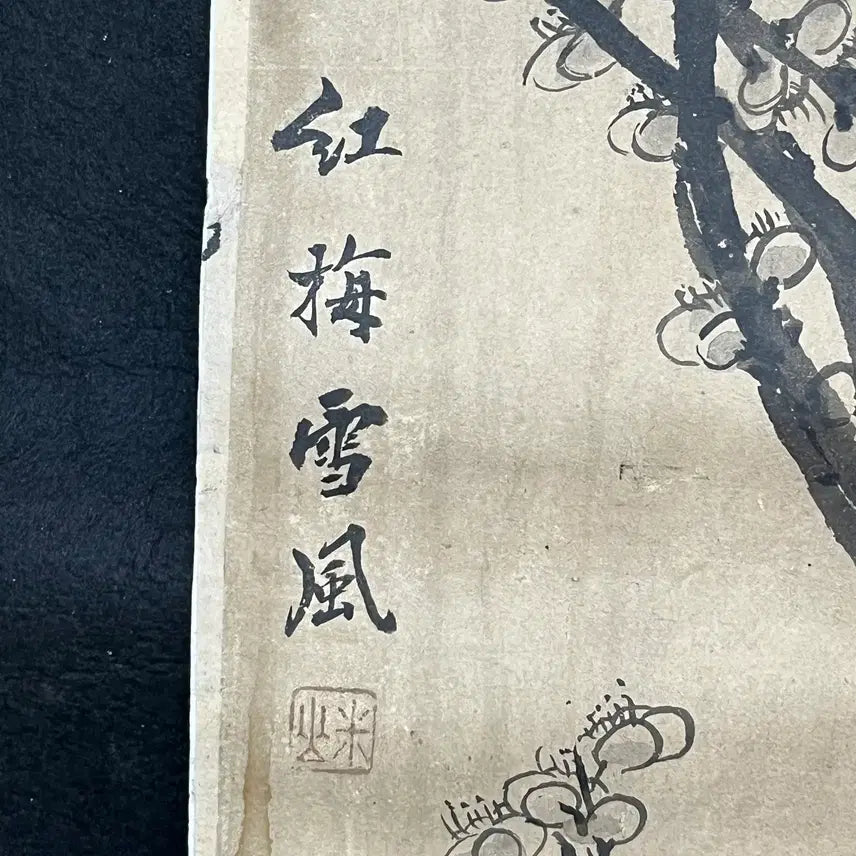 红梅雪風
米